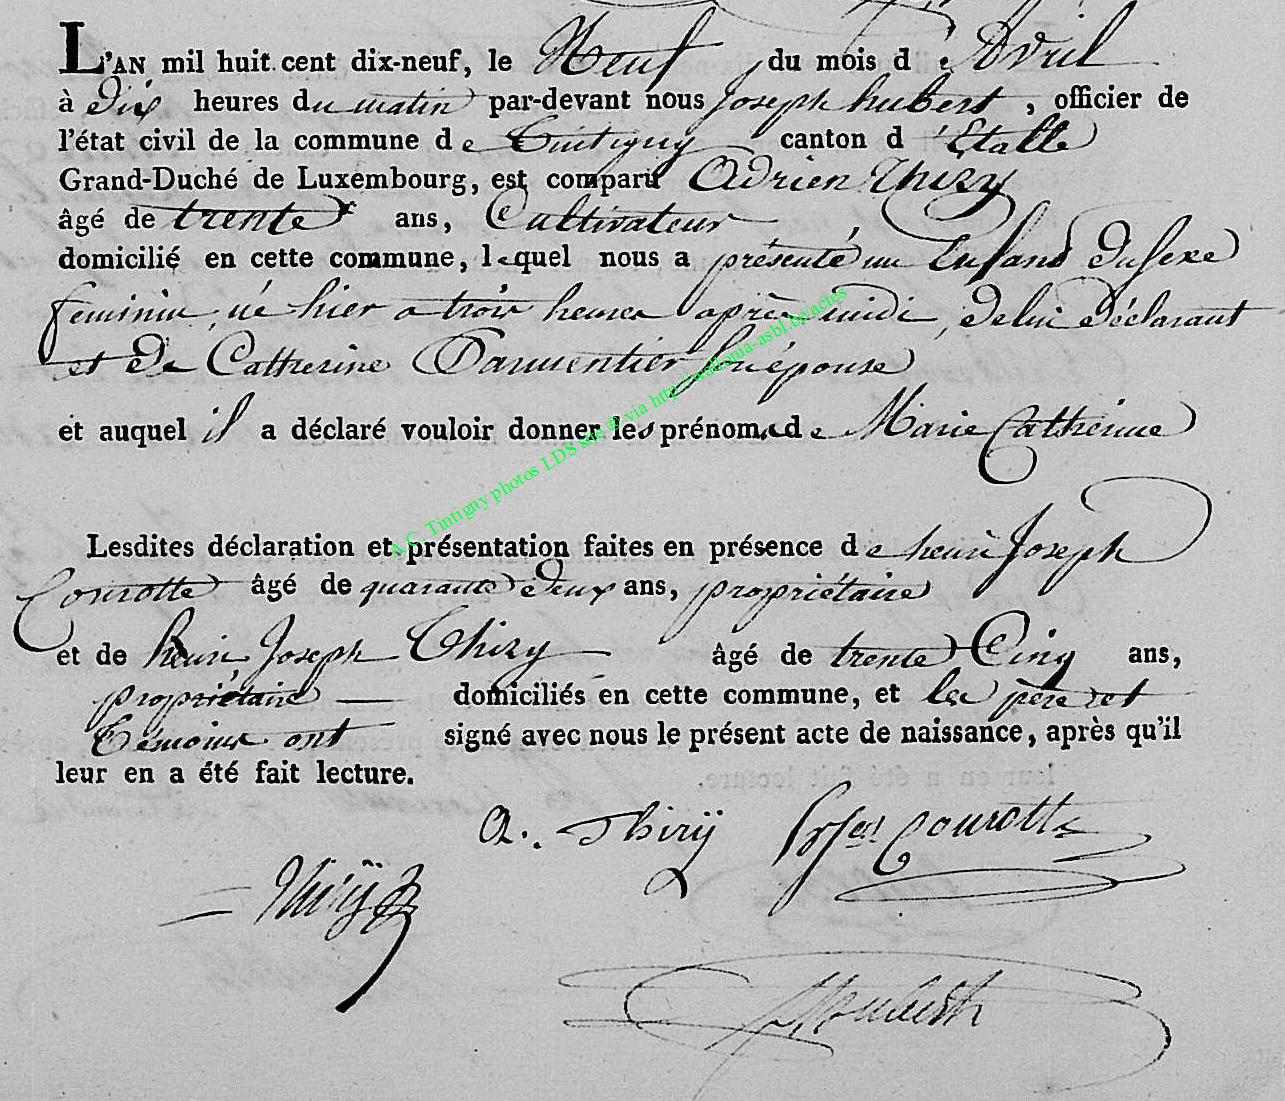 L'AN mil huit cent dix-neuf, le Neuf du mois d'Avril
à Dix heures du matin par-devant nous Joseph hubert, officier de
l'état civil de la commune de Tintigny canton d'Etalle
Grand-Duché de Luxembourg, est comparu Adrien Thiry
âgé de trente ans, Cultivateur
domicilié en cette commune, lequel nous a présenté un Enfant du sexe
feminin, né hier a trois heures après midi, de lui Déclarant
et de Catherine Parmentier son épouse
et auquel il a déclaré vouloir donner les prénoms de Marie Catherine
A.C. Tintigny photos LDS via http://wallonia-asbl.be/actes
Lesdites déclaration et présentation faites en présence de henri Joseph
Courotte âgé de quarante deux ans, propriétaire
et de henri Joseph Thiry âgé de trente Cinq ans,
propriétaire domiciliés en cette commune, et les père et
témoins ont signé avec nous le présent acte de naissance, après qu'il
leur en a été fait lecture.
A. Thirÿ Courotte
Thirÿ